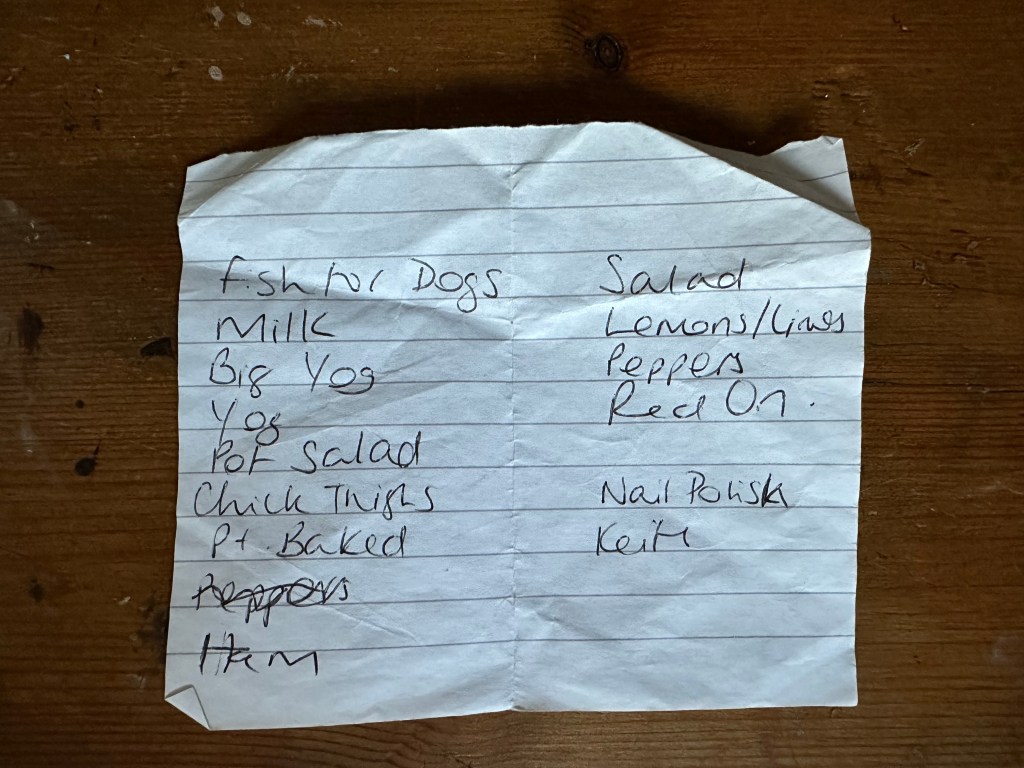 Fish for Dogs
Milk
Big Yog
Yog
Pot Salad
Chick Thighs
Pt. Baked
Peppers
Ham
Salad
Lemons/Limes
Peppers
Red On.
Nail Polish
Keith